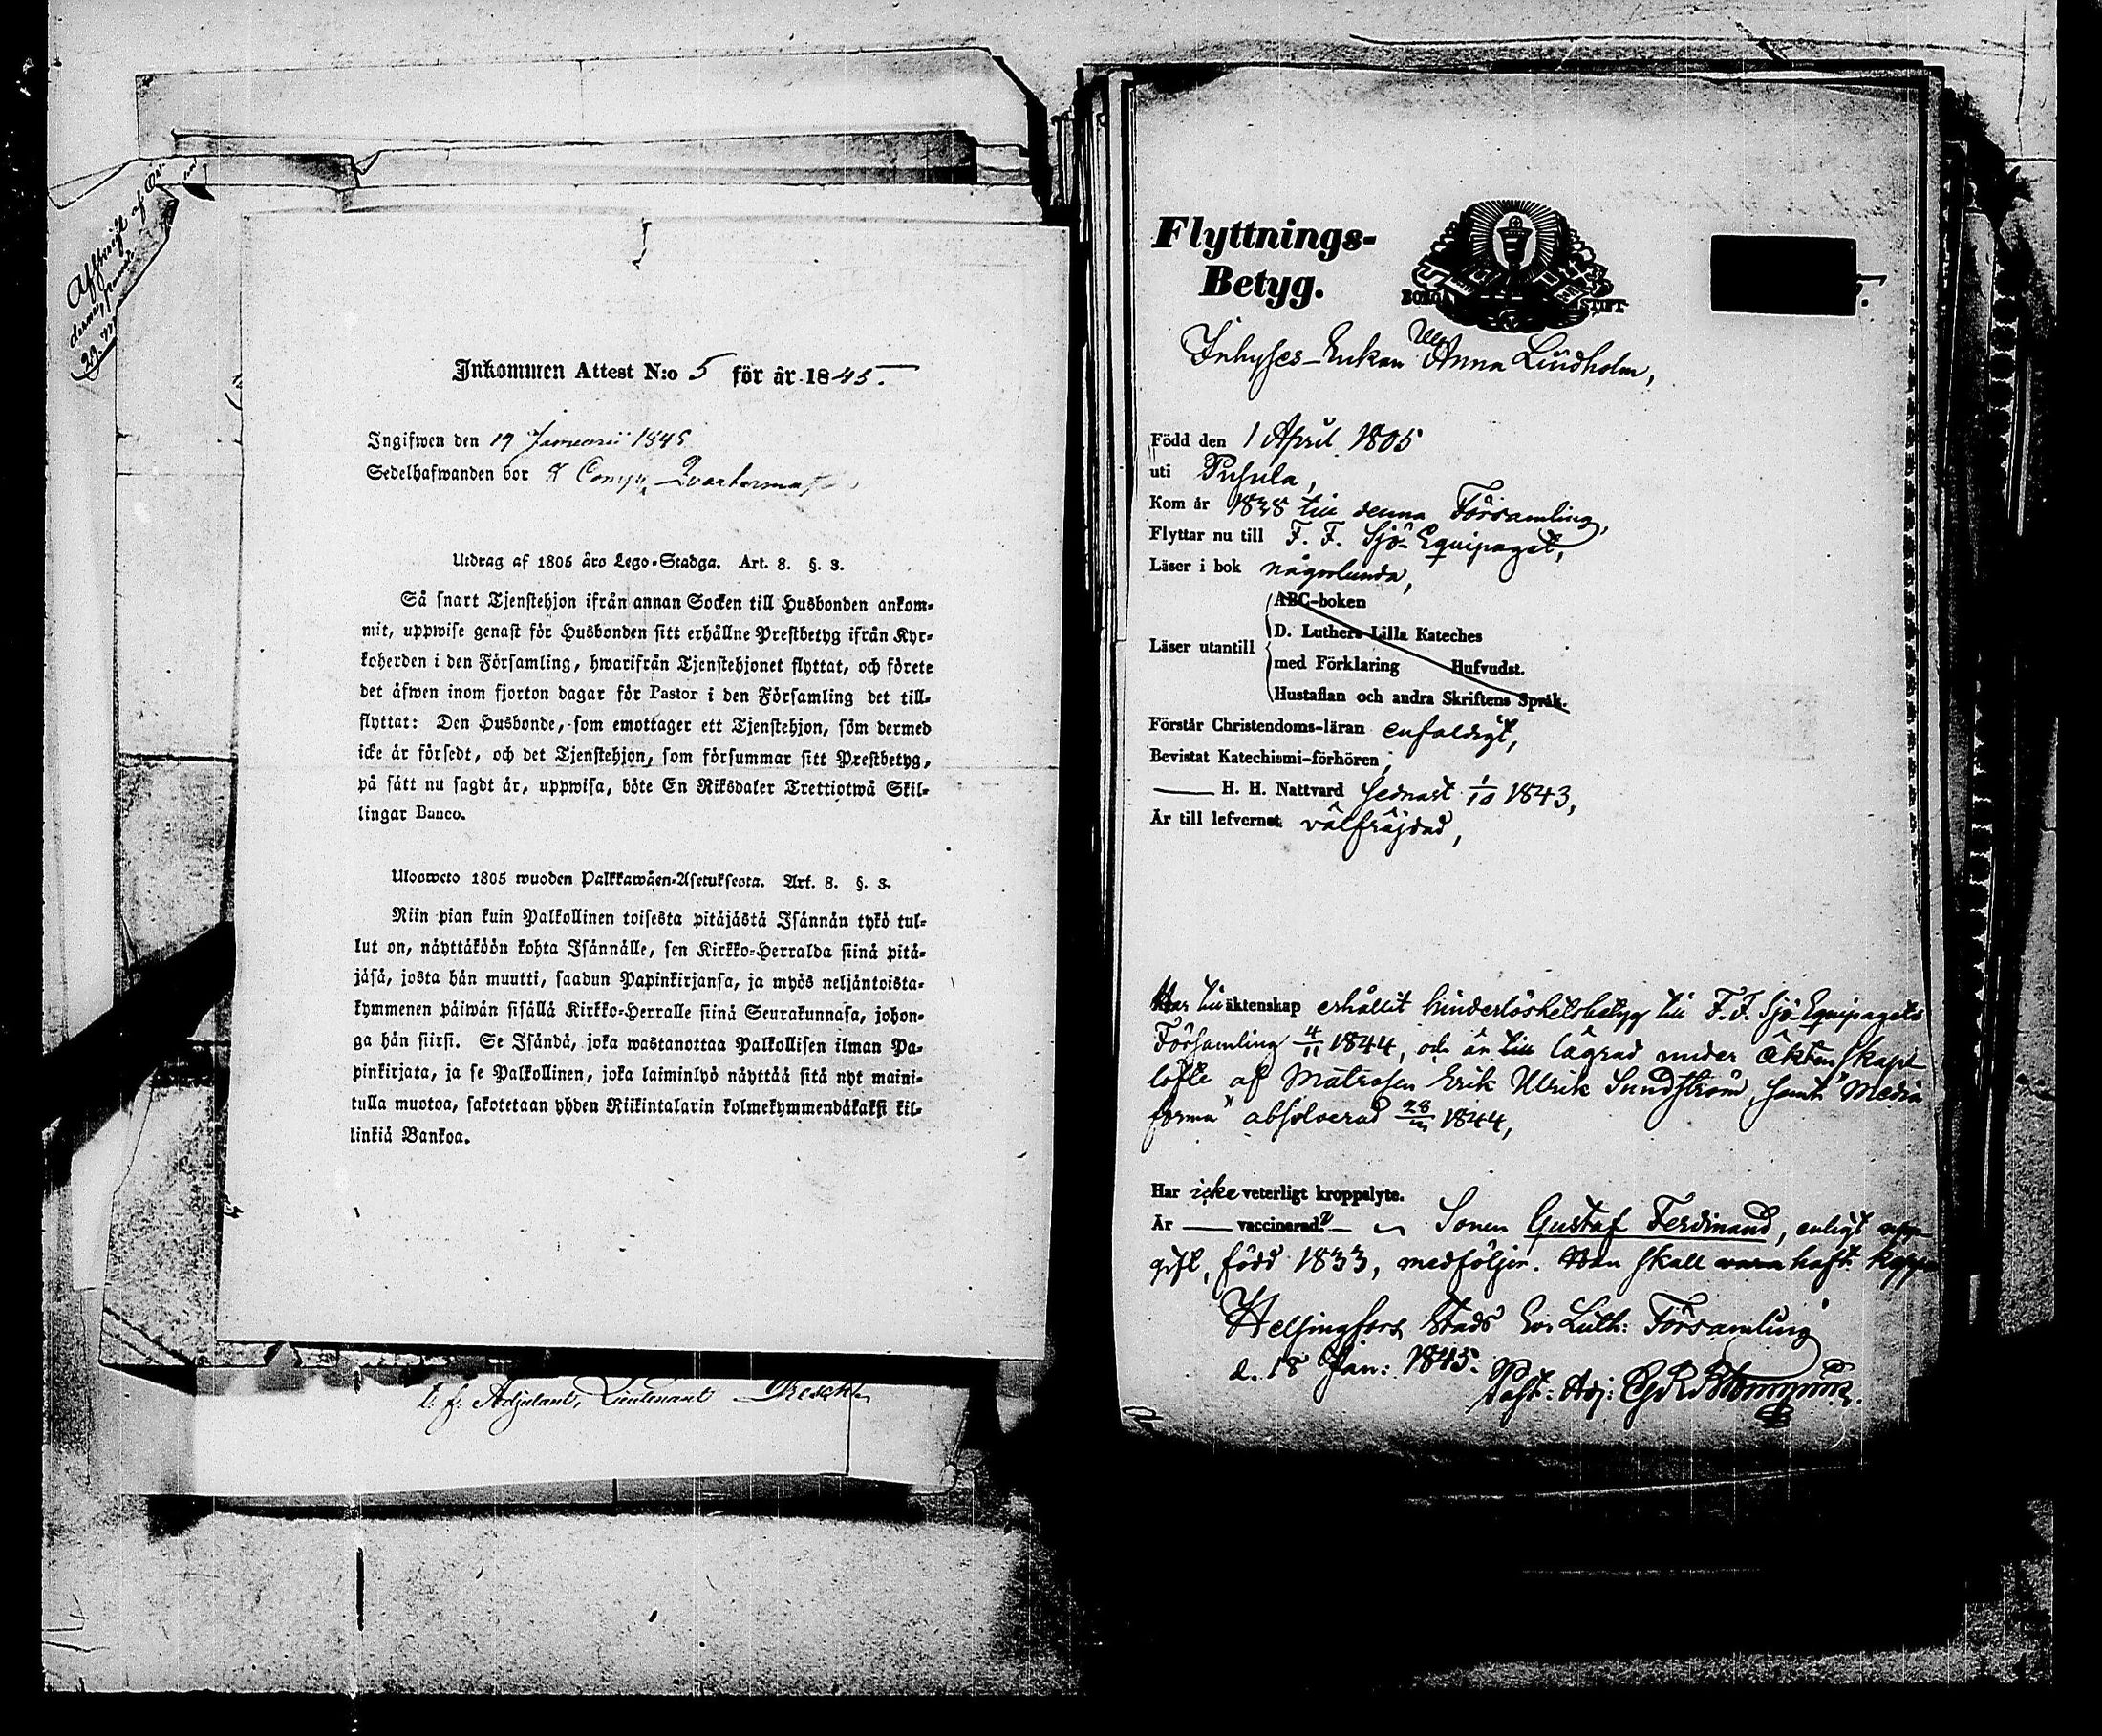 Affskrift af
Inkommen Attest N:o 5 för år 1845.
Ingifwen den 19 Januarii 1845
Sedelhafwanden bor
Utdrag af 1805 års Lego-Stadga. Art. 8. §. 3.
Så snart Tjenstehjon ifrån annan Socken till Husbonden ankom-
mit, uppwise genast för Husbonden sitt erhållne Prestbetyg ifrån Kyr-
koherden i den Församling, hwarifrån Tjenstehjonet flyttat, och förete
det äfwen inom fjorton dagar för Pastor i den Församling det till-
flyttat: Den Husbonde, som emottager ett Tjenstehjon, som dermed
icke är försedt, och det Tjenstehjon, som försummar sitt Prestbetyg,
på sätt nu sagdt är, uppwisa, böte En Riksdaler Trettiotwå Skil-
lingar Banco.
Ulosweto 1805 wuoden Palkkawäen-Asetuksesta. Art. 8. §. 3.
Niin pian kuin Palkollinen toisesta pitäjästä Isännän tykö tul-
lut on, näyttäköön kohta Isännälle, sen Kirkko-Herralda siinä pitä-
jäsä, josta hän muutti, saadun Papinkirjansa, ja myös neljäntoista-
kymmenen päiwän sisällä Kirkko-Herralle siinä Seurakunnasa, johon-
ga hän siirsi. Se Isändä, joka wastanottaa Palkollisen ilman Pa-
pinkirjata, ja se Palkollinen, joka laiminlyö näyttää sitä nyt maini-
tulla muotoa, sakotetaan yhden Riikintalarin kolmekymmendäkaksi kil-
linkiä Bankoa.
t. f. Adjutant, Lieutenant
Flyttnings-
Betyg.
BORGÅ STIFT
Inhyses-Enkan Ulr. Anna Lindholm,
Född den 1 April 1805
uti Pusula,
Kom år 1838 till denna Församling,
Flyttar nu till F. F. Sjö-Equipaget,
Läser i bok någorlunda,
ABC-boken
D. Luthers Lilla Kateches
Läser utantill
med Förklaring Hufvudst.
Hustaflan och andra Skriftens Språk.
Förstår Christendoms-läran enfaldigt,
Bevistat Katechismi-förhören,
H. H. Nattvard sednast 1/10 1843,
Är till lefvernet välfräjdad,
Har till äktenskap erhållit hinderlöshetsbetyg till F. F. Sjö-Equipagets
Församling 4/11 1844, och är till lägrad under äktenskaps
löfte af Matrosen Erik Ulrik Sundström, samt "Media
forma" absolverad 28/ 1844,
Har icke veterligt kroppslyte.
Är vaccinerad. Sonen Gustaf Ferdinand, enligt upp-
gift, född 1833, medföljer. Han skall vara haft koppor
Helsingfors Stads Ev. Luth: Församling
d. 18 Jan: 1845.
Past: Adj: